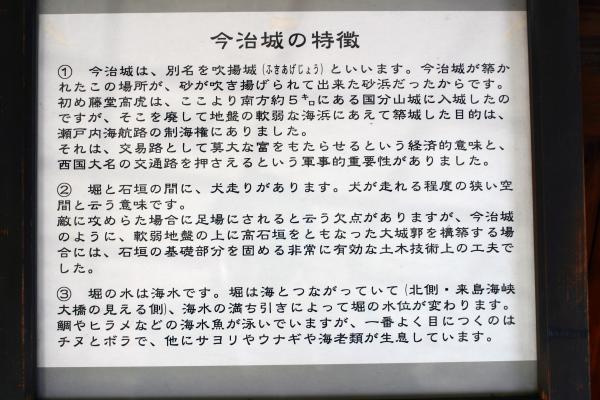 今治城の特徴
① 今治城は、別名を吹揚城(ふきあげじょう)といいます。今治城が築か
れたこの場所が、砂が吹き揚げられて出来た砂浜だったからです。
初め藤堂高虎は、ここより南方約5㌔にある国分山城に入城したの
ですが、そこを廃して地盤の軟弱な海浜にあえて築城した目的は、
瀬戸内海航路の制海権にありました。
それは、交易路として莫大な富をもたらせるという経済的意味と、
西国大名の交通路を押さえるという軍事的重要性がありました。
② 堀と石垣の間に、犬走りがあります。犬が走れる程度の狭い空
間と云う意味です。
敵に攻めらた場合に足場にされると云う欠点がありますが、今治城
のように、軟弱地盤の上に高石垣をともなった大城郭を構築する場
合には、石垣の基礎部分を固める非常に有効な土木技術上の工夫で
した。
③ 堀の水は海水です。堀は海とつながっていて(北側・来島海峡
大橋の見える側)、海水の満ち引きによって堀の水位が変わります。
鯛やヒラメなどの海水魚が泳いでいますが、一番よく目につくのは
チヌとボラで、他にサヨリやウナギや海老類が生息しています。